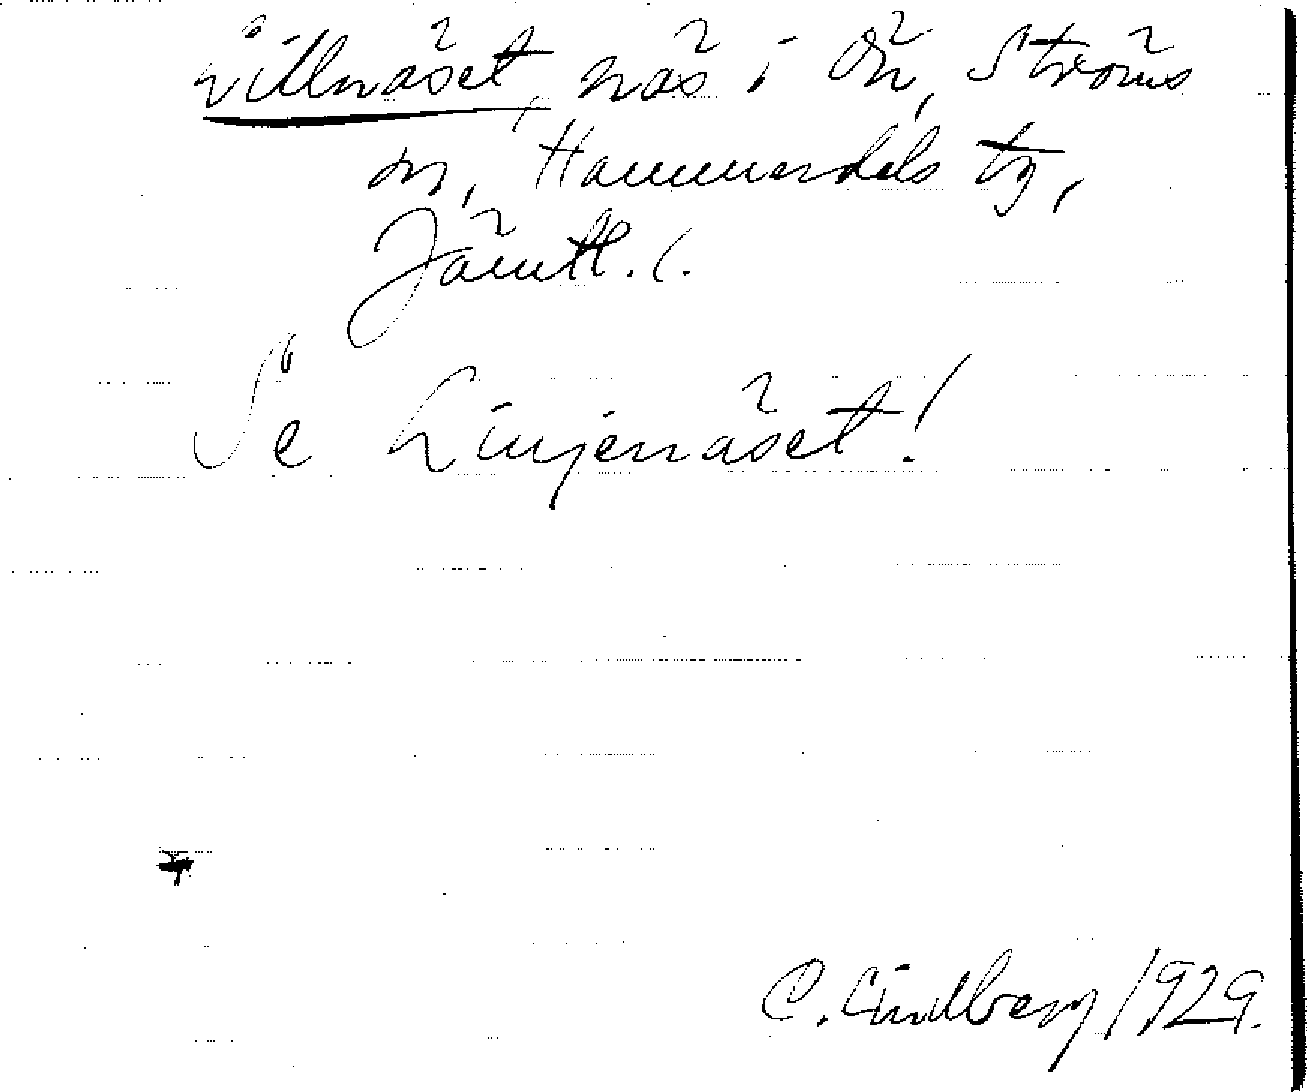 Villnäset, näs i Ön, Ströms
sn, Hammerdals tg,
Jämtl. l.
Se Linjenäset!
C. Lindberg 1929.